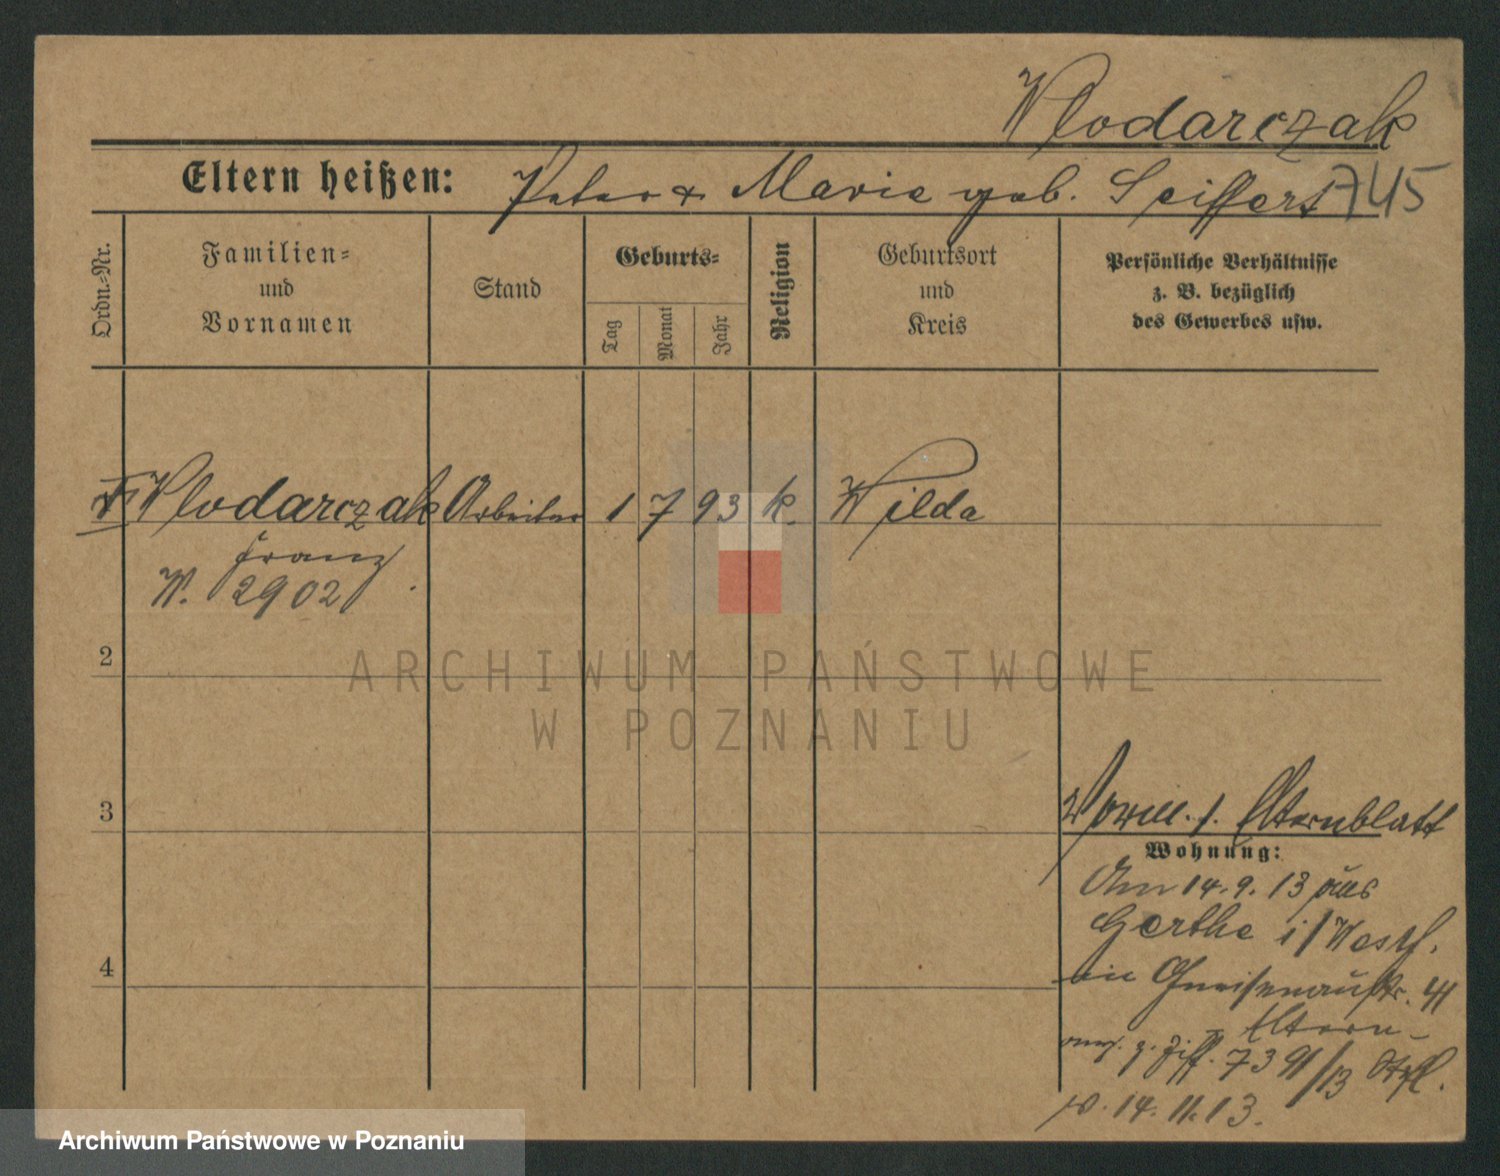 Wlodarczak
Eltern heißen: Peter & Marie geb. Seiffert 745
Ordn.-Nr.
Familien-
und
Vornamen
Stand
Geburts-
Tag
Monat
Jahr
Religion
Geburtsort
und
Kreis
Persönliche Verhältnisse
z. B. bezüglich
des Gewerbes usw.
Wlodarczak Arbeiter 1 7 93 k. Wilda
Franz
W. 2902
2
3
4
Elternblatt
Wohnung:
Am 14.9.13 aus
Gerthe i/Westf.
Gneisenaustr. 41
Eltern
z. Ziff. 7391/13
v. 14.11.13.
ARCHIWUM PAŃSTWOWE
W POZNANIU
Archiwum Państwowe w Poznaniu